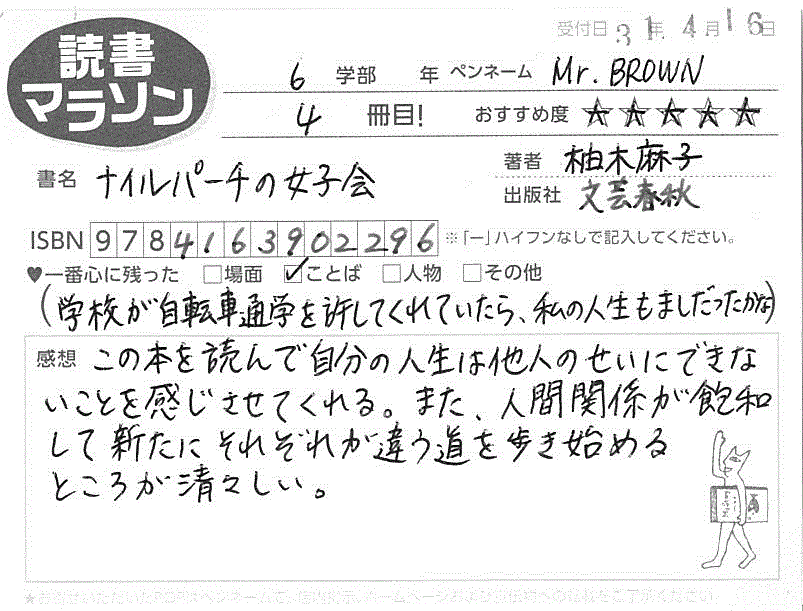 受付日 31年 4月 16日
読書
マラソン
6 学部 年 ペンネーム Mr. BROWN
4 冊目! おすすめ度 ☆☆☆☆☆
書名 ナイルパーチの女子会
著者 柚木麻子
出版社 文芸春秋
ISBN 9784163902296 ※「ー」ハイフンなしで記入してください。
♥一番心に残った □場面 ☑ことば □人物 □その他
(学校が自転車通学を許してくれていたら、私の人生もましだったかな)
感想 この本を読んで自分の人生は他人のせいにできな
いことを感じさせてくれる。また、人間関係が飽和
して新たにそれぞれが違う道を歩き始める
ところが清々しい。